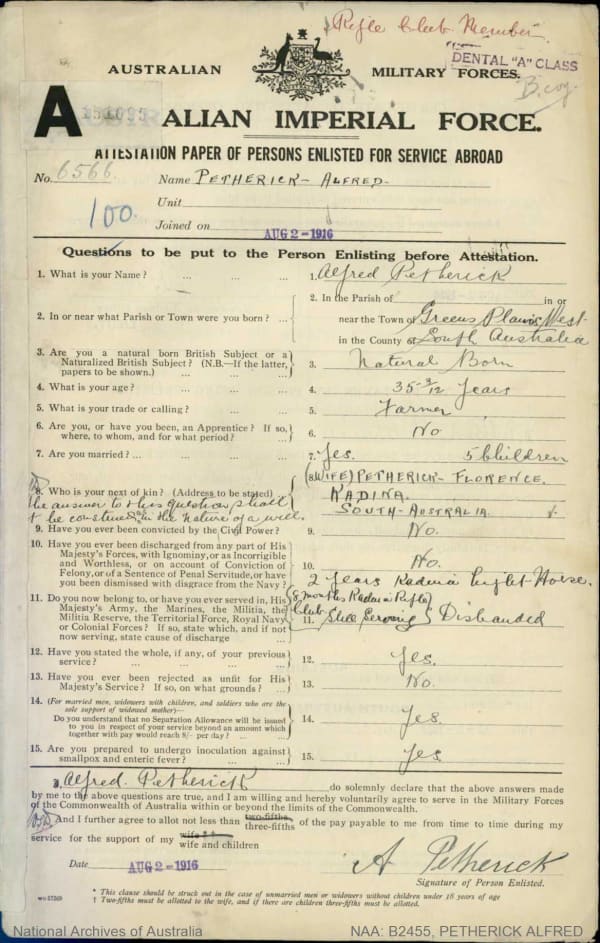 Rifle Club Member
DENTAL "A" CLASS
B. coy.
AUSTRALIAN MILITARY FORCES.
A
ALIAN IMPERIAL FORCE.
ATTESTATION PAPER OF PERSONS ENLISTED FOR SERVICE ABROAD
No. 6566 Name PETHERICK - ALFRED.
100. Unit
Joined on AUG 2 - 1916
Questions to be put to the Person Enlisting before Attestation.
1. What is your Name? ... ... ... 1. Alfred Petherick
2. In or near what Parish or Town were you born? ... 2. In the Parish of in or
near the Town of Greens Plains West
in the County of South Australia
3. Are you a natural born British Subject or a
Naturalized British Subject? (N.B.—If the latter,
papers to be shown.) ... ... 3. Natural Born
4. What is your age? ... ... ... 4. 35 3/12 Years
5. What is your trade or calling? ... ... 5. Farmer
6. Are you, or have you been, an Apprentice? If so,
where, to whom, and for what period? ... 6. No
7. Are you married? ... ... ... 7. Yes. 5 Children
8. Who is your next of kin? (Address to be stated) 8. (WIFE) PETHERICK - FLORENCE.
KADINA.
SOUTH - AUSTRALIA.
The answer to this question shall
not be construed as in the nature of a will.
9. Have you ever been convicted by the Civil Power? 9. No.
10. Have you ever been discharged from any part of His
Majesty's Forces, with Ignominy, or as Incorrigible
and Worthless, or on account of Conviction of
Felony, or of a Sentence of Penal Servitude, or have
you been dismissed with disgrace from the Navy? 10. No.
11. Do you now belong to, or have you ever served in, His
Majesty's Army, the Marines, the Militia, the
Militia Reserve, the Territorial Force, Royal Navy
or Colonial Forces? If so, state which, and if not
now serving, state cause of discharge 11. 2 Years Kadina Light Horse.
(8 months Kadina Rifle)
Club
Still Serving Disbanded
12. Have you stated the whole, if any, of your previous
service? ... ... ... 12. Yes.
13. Have you ever been rejected as unfit for His
Majesty's Service? If so, on what grounds? ... 13. No.
14. (For married men, widowers with children, and soldiers who are the
sole support of widowed mother)—
Do you understand that no Separation Allowance will be issued
to you in respect of your service beyond an amount which
together with pay would reach 8/- per day? ... ... 14. Yes.
15. Are you prepared to undergo inoculation against
smallpox and enteric fever? ... ... 15. Yes
I, Alfred Petherick do solemnly declare that the above answers made
by me to the above questions are true, and I am willing and hereby voluntarily agree to serve in the Military Forces
of the Commonwealth of Australia within or beyond the limits of the Commonwealth.
And I further agree to allot not less than two-fifths three-fifths of the pay payable to me from time to time during my
service for the support of my wife wife and children
Date AUG 2 - 1916 A Petherick
Signature of Person Enlisted.
* This clause should be struck out in the case of unmarried men or widowers without children under 18 years of age
† Two-fifths must be allotted to the wife, and if there are children three-fifths must be allotted.
National Archives of Australia NAA: B2455, PETHERICK ALFRED